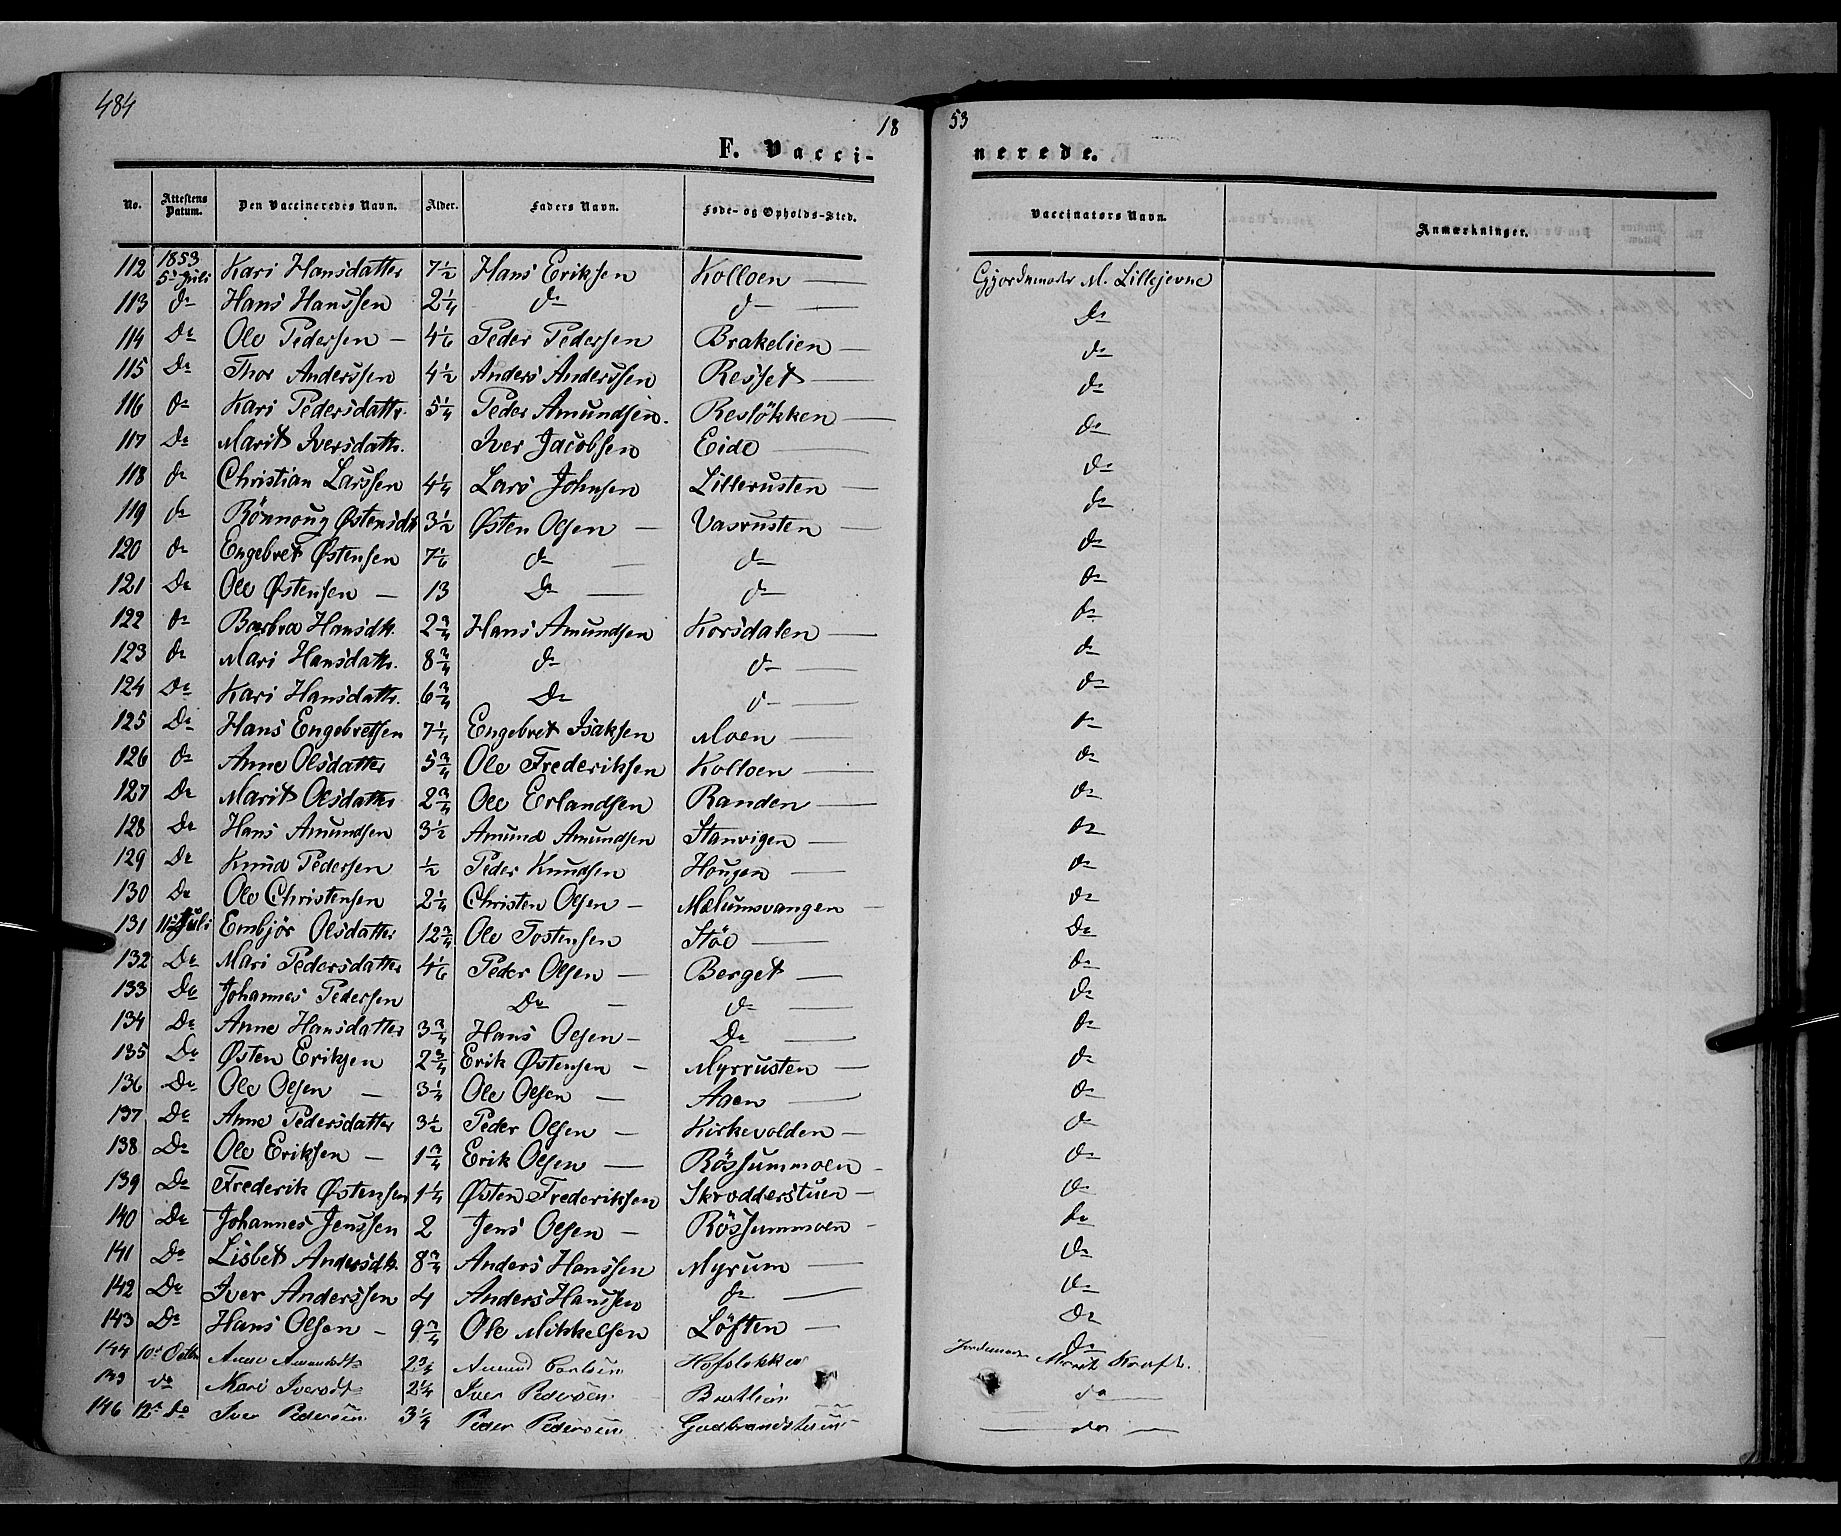 484
18 53
F. Vacci- nerede.
No. Attestens Datum. Den Vaccineredes Navn. Alder. Faders Navn. Føde- og Opholds-Sted. Vaccinators Navn. Anmærkninger.
112 1853 5te Juli Kari Hansdatter 7 1/2 Hans Eriksen Kolloen — M. Lillejevne
113 do Hans Hanssen 2 1/4 do do — do
114 Do Ole Pedersen — 4 1/6 Peder Pedersen Brakelien — do
115 Do Thor Anderssen 4 1/2 Anders Anderssen Resset — do
116 do Kari Pedersdattr. 5 1/4 Peder Amundsen. Resløkken — do
117 Do Marit Iversdattr. Iver Jacobsen Eide — do
118 do Christian Larssen 4 1/4 Lars Johnsen Lillerusten — do
119 do Rønnoug Østensdtr 3 1/2 Østen Olsen — Vasrusten — do
120 do Engebret Østensen 7 1/6 do — do do
121 Do Ole Østensen — 13 Do — do do
122 do Barbra Hansdtr. 2 3/4 Hans Amundsen Korsdalen — do
123 do Mari Hansdattr. 8 3/4 do do — do
124 Do Kari Hansdattr. 6 3/4 Do do — do
125 Do Hans Engebretsen 7 1/4 Engebret Isaksen Moen — do
126 do Anne Olsdatter 5 3/4 Ole Frederiksen Kolloen — do
127 Do Marit Olsdatter 2 3/4 Ole Erlandsen Randen — do
128 Do Hans Amundsen 3 1/2 Amund Amundsen Stanvigen — do
129 Do Knud Pedersen 1/2 Peder Knudsen Hougen — do
130 Do Ole Christensen 2 1/4 Christen Olsen — Mælumsvangen — do
131 11te Juli Embjør Olsdatter 12 3/4 Ole Tostensen Støe — Do
132 Do Mari Pedersdatter 4 1/6 Peder Olsen — Berget — do
133 Do Johannes Pedersen Do — do — do
134 Do Anne Hansdatter 3 3/4 Hans Olsen — Do — do
135 Do Østen Eriksen 2 3/4 Erik Østensen — Myrrusten — do
136 Do Ole Olsen — 3 1/4 Ole Olsen — Aaen — do
137 Do Anne Pedersdatter 3 1/2 Peder Olsen — Kirkevolden — do
138 Do Ole Eriksen — 1 3/4 Erik Olsen — Røssummoen — do
139 Do Frederik Østensen 1 1/4 Østen Frederiksen Skrædderstuen — do
140 Do Johannes Jenssen 2 Jens Olsen — Røssummoen — do
141 Do Lisbet Andersdtr. 8 3/4 Anders Hanssen Myrum — do
142 Do Iver Anderssen 4 Anders Hanssen do — do
143 Do Hans Olsen — 9 3/4 Ole Mikkelsen Løften — do
Do
144 10de Octbr Anne Amundsdtr 2 3/4 Amund Carlsen Hofsløkken Jordemoder Marit Kraft.
145 do Mari Iversdtr 2 1/4 Iver Pedersen Brætlien do
146 12te Do Iver Pedersen 3 1/4 Peder Pedersen Gudbrandstuen — do —